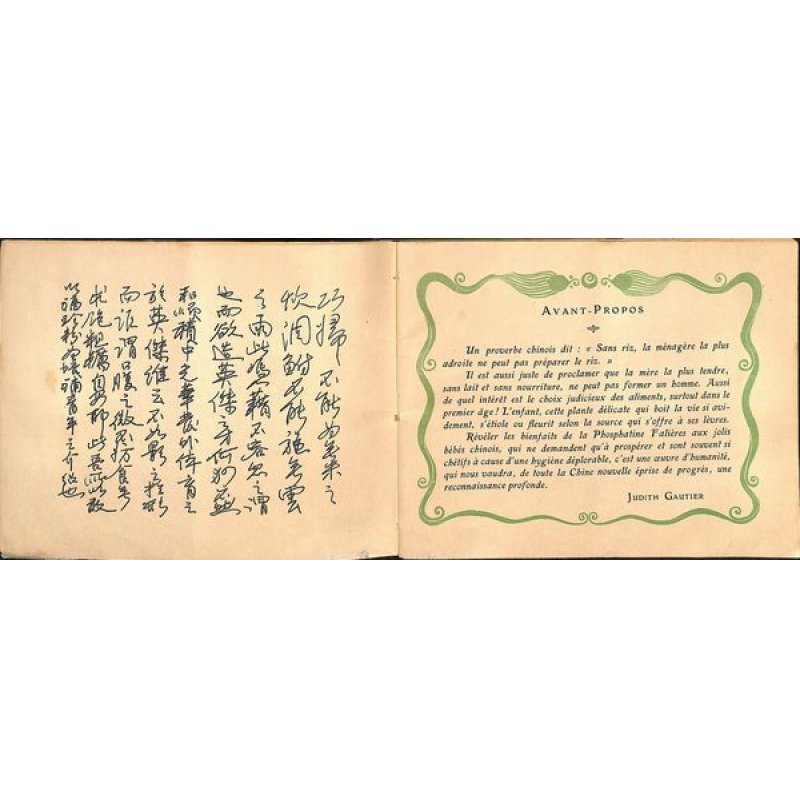 巧婦不能為無米之
炊涸鮒不能施無雲
之雨此憑藉不容忽之謂
也而欲造英傑之身何獨
和順積中光華發外体育之
於英傑維云不如影之形
而詎謂口腹之微不妨食無
求飽粗糲自此吾所以敢
以珍粉為補青年之介紹也
AVANT-PROPOS
Un proverbe chinois dit : « Sans riz, la ménagère la plus
adroite ne peut pas préparer le riz. »
Il est aussi juste de proclamer que la mère la plus tendre,
sans lait et sans nourriture, ne peut pas former un homme. Aussi
de quel intérêt est le choix judicieux des aliments, surtout dans le
premier âge ! L'enfant, cette plante délicate qui boit la vie si avi-
dement, s'étiole ou fleurit selon la source qui s'offre à ses lèvres.
Révéler les bienfaits de la Phosphatine Falières aux jolis
bébés chinois, qui ne demandent qu'à prospérer et sont souvent si
chétifs à cause d'une hygiène déplorable, c'est une œuvre d'humanité,
qui nous vaudra, de toute la Chine nouvelle éprise de progrès, une
reconnaissance profonde.
JUDITH GAUTIER